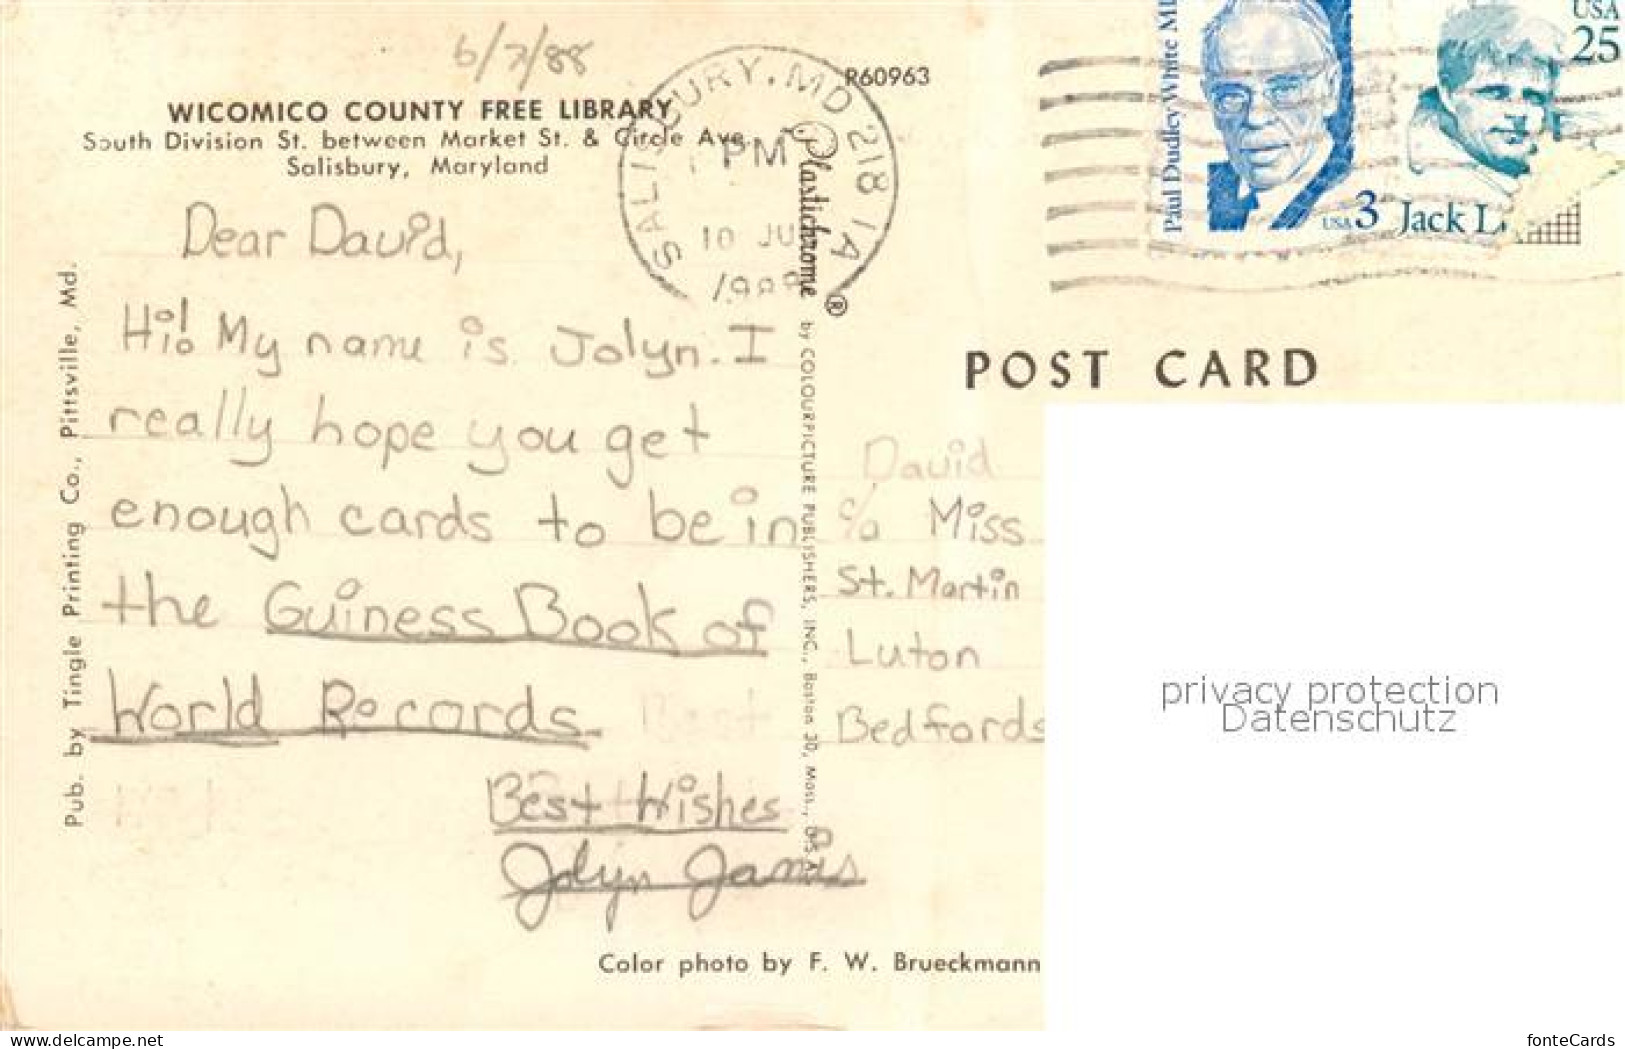 6/7/88
WICOMICO COUNTY FREE LIBRARY
South Division St. between Market St. & Circle Ave.
Salisbury, Maryland
R60963
SALISBURY, MD 218 1A
PM
10 JU
1988
Paul Dudley White MD
USA 3
Jack L
USA
25
Dear David,
Hi! My name is Jolyn. I
really hope you get
enough cards to be in
the Guiness Book of
World Records.
Best Wishes
Jolyn Janis
Pub. by Tingle Printing Co., Pittsville, Md.
Plastichrome ® by COLOURPICTURE PUBLISHERS, INC., Boston 30, Mass., U.S.A.
POST CARD
David
c/o Miss
St. Martin
Luton
Bedfords
Color photo by F. W. Brueckmann
privacy protection
Datenschutz
www.delcampe.net
fonteCards